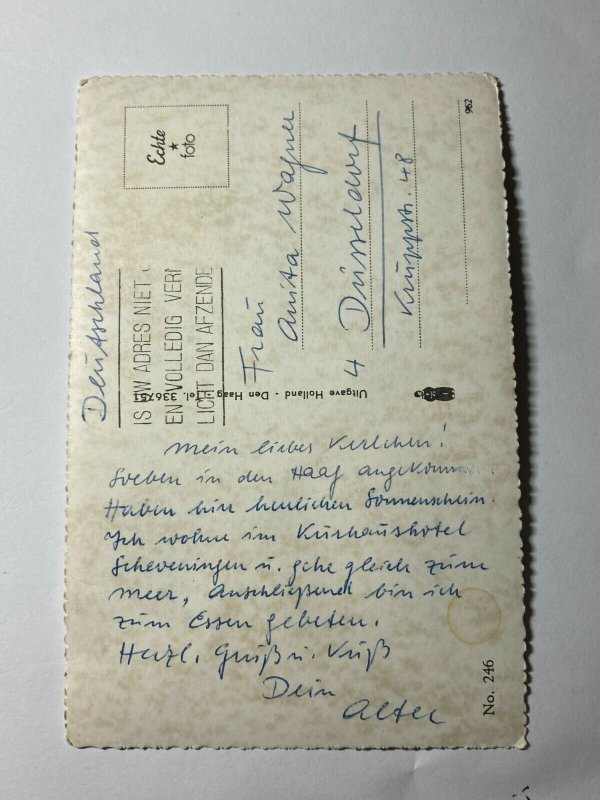 mein liebes Kerlchen!
Soeben in den Haag angekommen
Haben hier herrlichen Sonnenschein.
Ich wohne im Kurhaushotel
Scheveningen u. gehe gleich zum
Meer, Anschließend bin ich
zum Essen gebeten.
Herzl. Gruß u. Kuß
Dein
Alter
No. 246
Deutschland
IS UW ADRES NIET
EN VOLLEDIG VERM
LICHT DAN AFZENDE
Uitgave Holland - Den Haag - Tel. 336751
Echte
foto
Frau
Anita Wagner
4 Düsseldorf
Kruppstr. 48
962